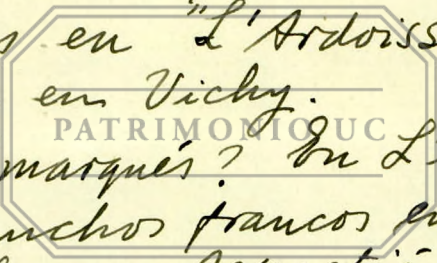 en "L'Ardoiss
em Vichy.
PATRIMONIO UC
marqués? En L'
uchos francos en